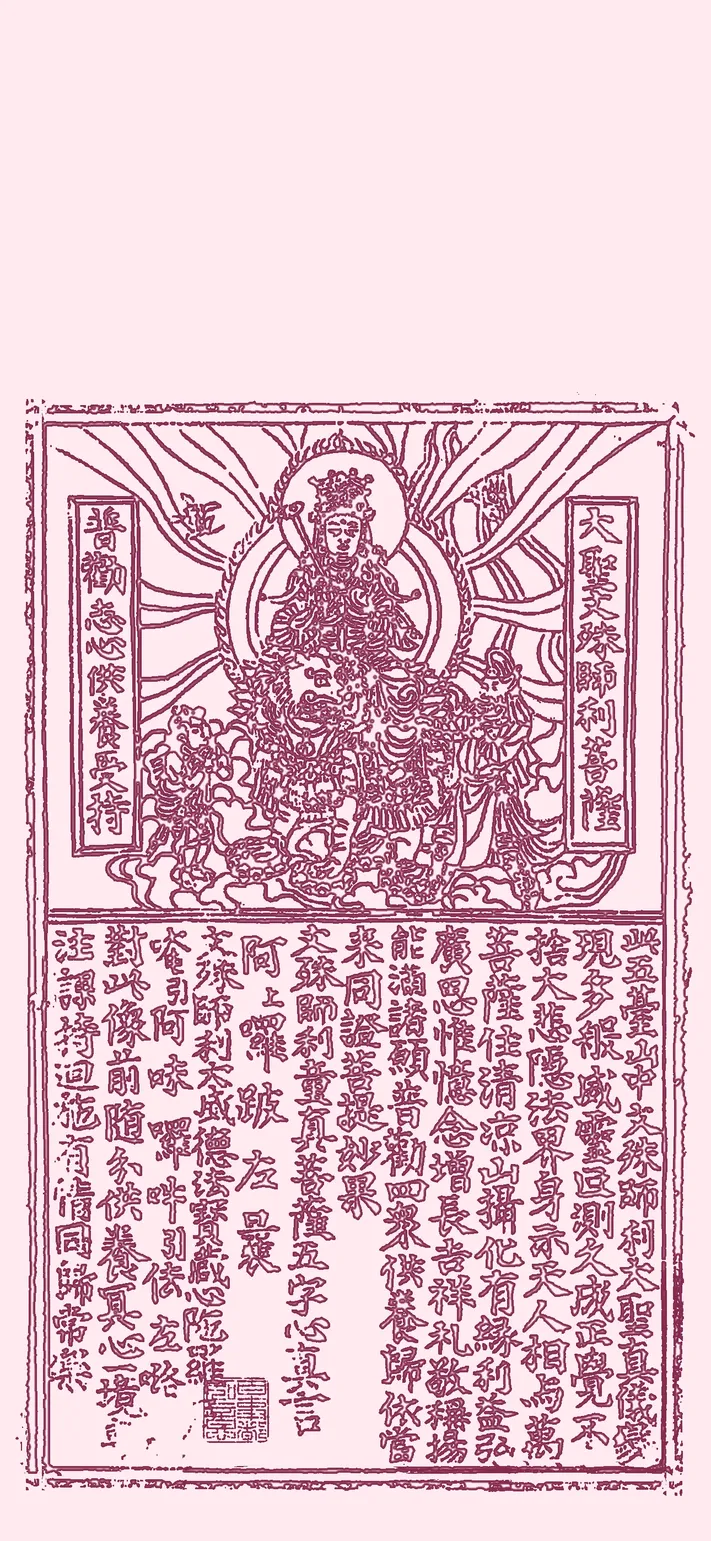 大聖文殊師利菩薩
普勸志心供養受持
此五臺山中文殊師利大聖真儀變
現多般威靈叵測久成正覺不
捨大悲隱法界身示天人相與萬
菩薩住清涼山攝化有緣利益弘
廣思惟憶念增長吉祥礼敬稱揚
能滿諸願普勸四眾供養歸依當
来同證菩提妙果
文殊師利童真菩薩五字心真言
阿上囉跛左曩
文殊師利大威德法寶藏心陁羅
唵引阿味囉吽引佉左咯
對此像前隨分供養冥心一境
注課持迴施有情同歸常樂